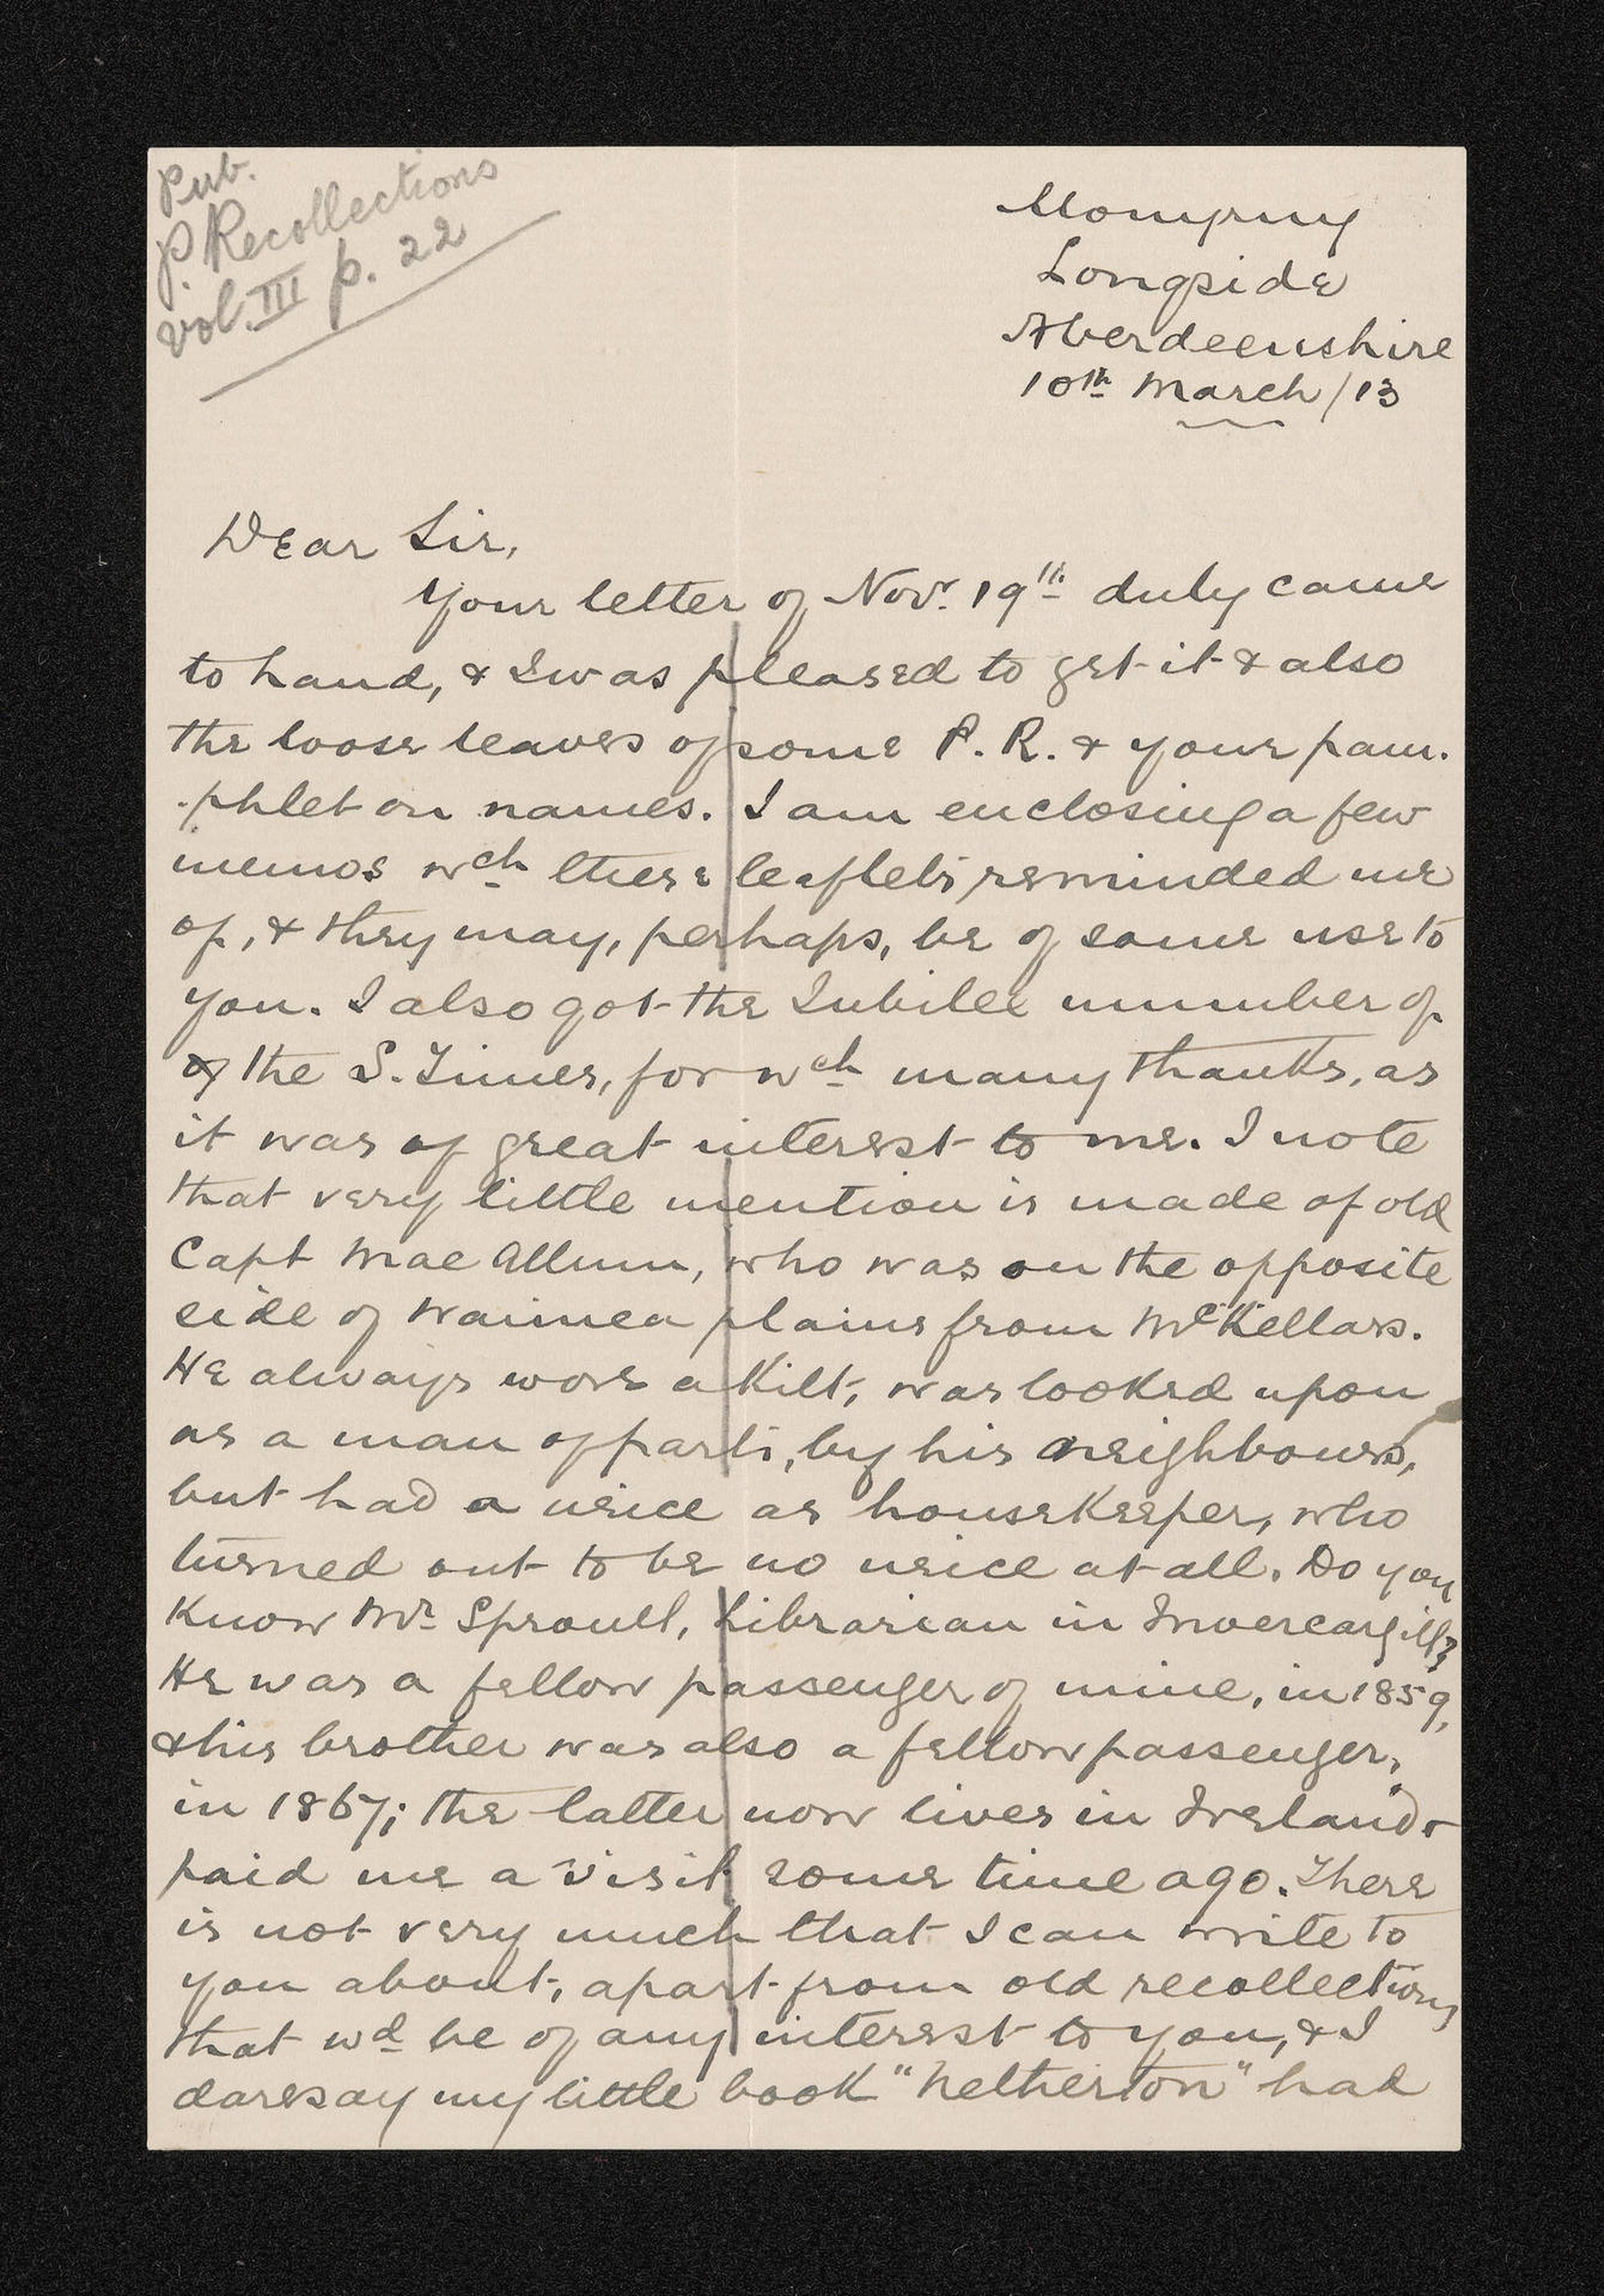 Pub.
P. Recollections
vol. III p. 22
Longside
Aberdeenshire
10th March /13
Dear Sir,
Your letter of Novr. 19th duly came
to hand, & I was pleased to get it & also
the loose leaves of some P. R. & your pam.
.phlet on names. I am enclosing a few
memos wch these leaflets reminded me
of, & they may, perhaps, be of some use to
you. I also got the Jubilee number of
of the S. Times, for wch many thanks, as
it was of great interest to me. I note
that very little mention is made of old
Capt Mac Allum, who was on the opposite
side of Waimea plains from McKellars.
He always wore a Kilt, was looked upon
as a man of parts, by his neighbours,
but had a neice as housekeeper, who
turned out to be no neice at all. Do you
Know Mr Sproull, Librarian in Invercargill?
He was a fellow passenger of mine, in 1859,
& his brother was also a fellow passenger,
in 1867; the latter now lives in Ireland &
paid me a visit some time ago. There
is not very much that I can write to
you about, apart from old recollections
that wd be of any interest to you, & I
daresay my little book "Netherton" had